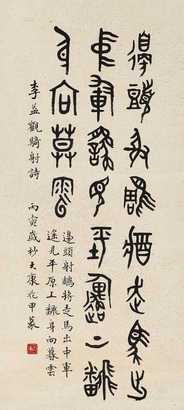 邊頭射鵰將走馬出
中軍遙見平原上翻
身向暮雲
邊頭射鵰將走馬出中軍
遙見平原上翻身向暮雲
李益觀騎射詩 丙寅歲杪大康